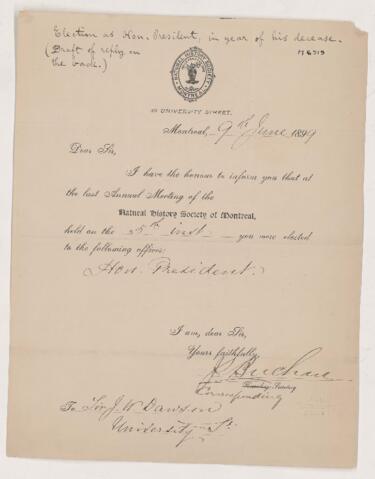 Election as Hon. President, in year of his decease.
(Draft of reply on
the back.)
NATURAL HISTORY SOCIETY
MONTREAL
UNIVERSITY STREET.
Montreal, 9th June 1899
Dear Sir,
I have the honour to inform you that at
the last Annual Meeting of the
Natural History Society of Montreal,
held on the 5th inst. you were elected
to the following offices:
Hon. President.
I am, dear Sir,
Yours faithfully,
Buchan
Corresponding
To Sir J. W. Dawson
University St.